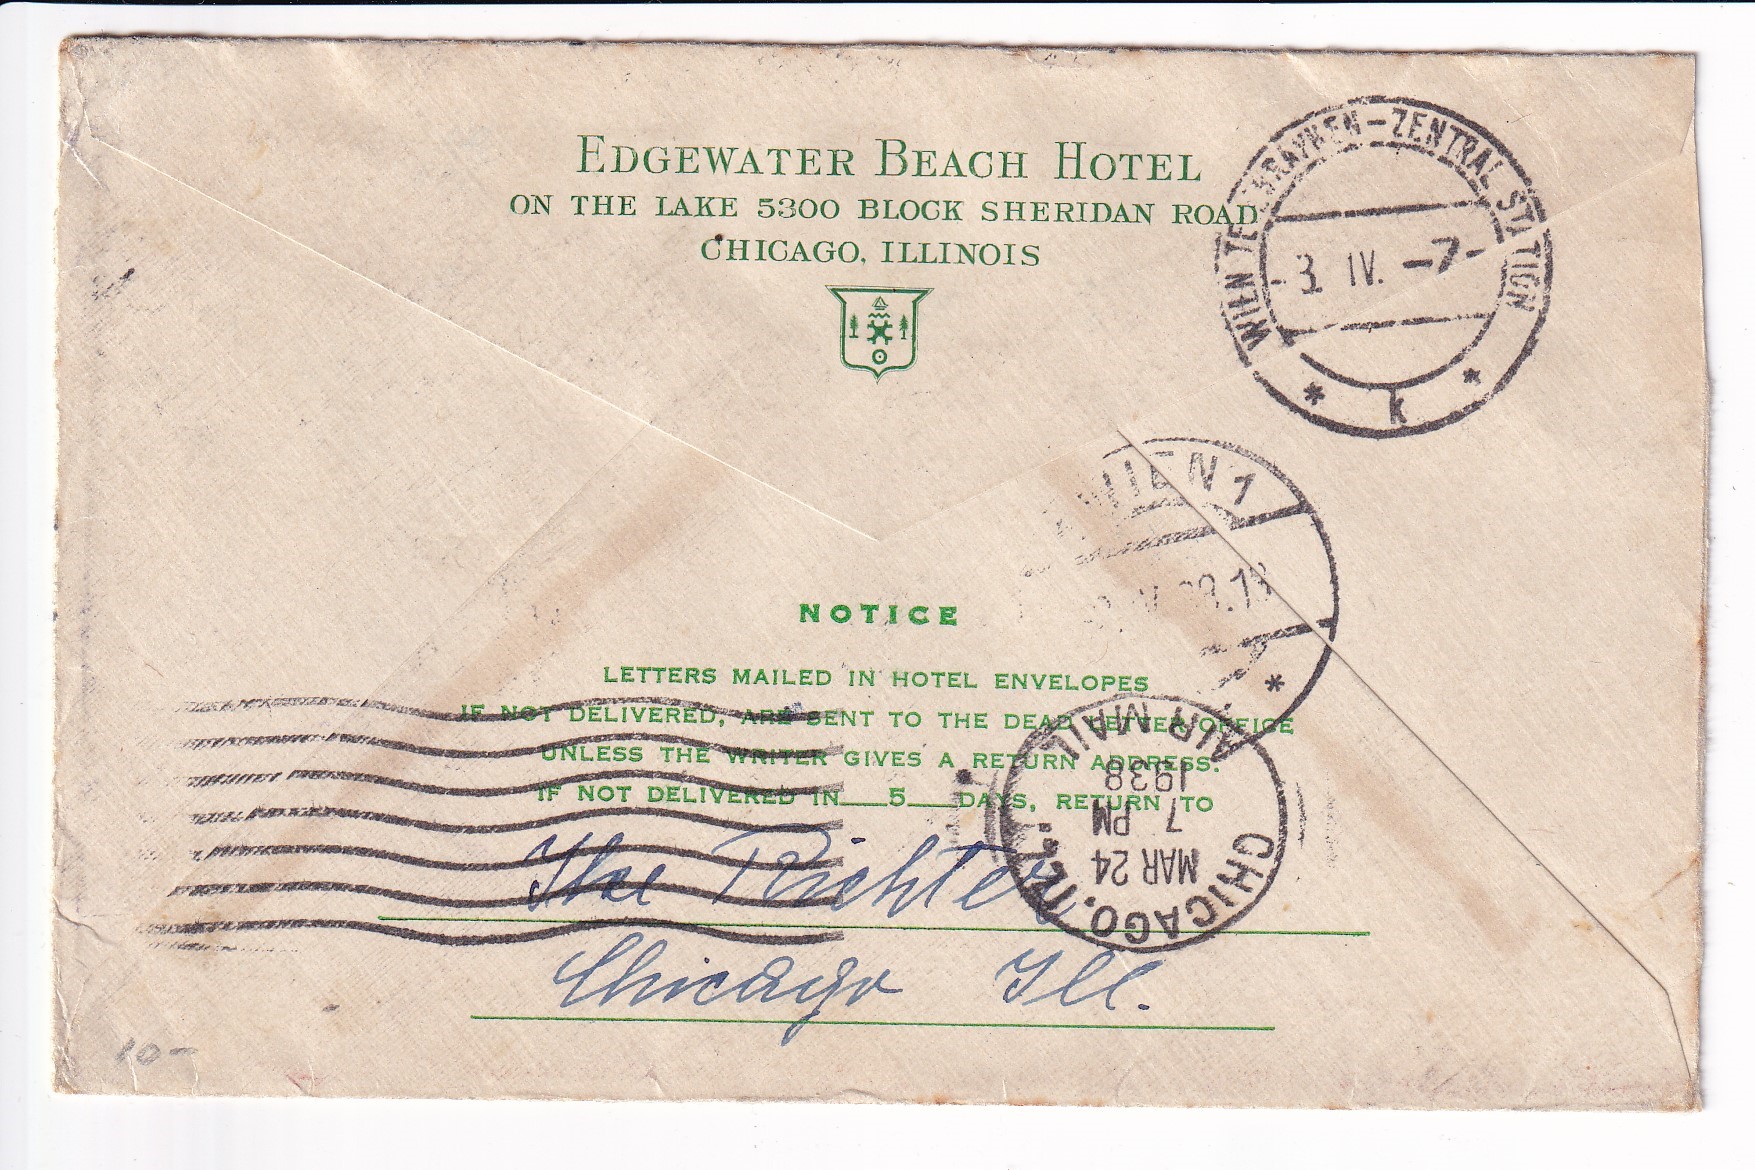 EDGEWATER BEACH HOTEL
ON THE LAKE 5300 BLOCK SHERIDAN ROAD
CHICAGO, ILLINOIS
WIEN TELEGRAPHEN-ZENTRAL STATION
-3. IV. -7-
* k *
WIEN 1
*
NOTICE
LETTERS MAILED IN HOTEL ENVELOPES
IF NOT DELIVERED, ARE SENT TO THE DEAD LETTER OFFICE
UNLESS THE WRITER GIVES A RETURN ADDRESS.
IF NOT DELIVERED IN 5 DAYS, RETURN TO
Ilse Richter
Chicago Ill.
CHICAGO, ILL.
MAR 24
7 PM
1938
AIR MAIL
10-